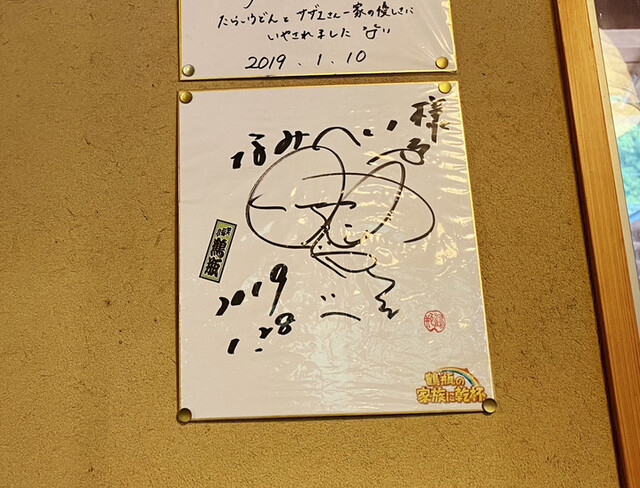 たらいうどんと サザエさん一家の優しさに
いやされました
2019.1.10
様
鶴瓶
2019
1.28
鶴瓶の
家族に乾杯